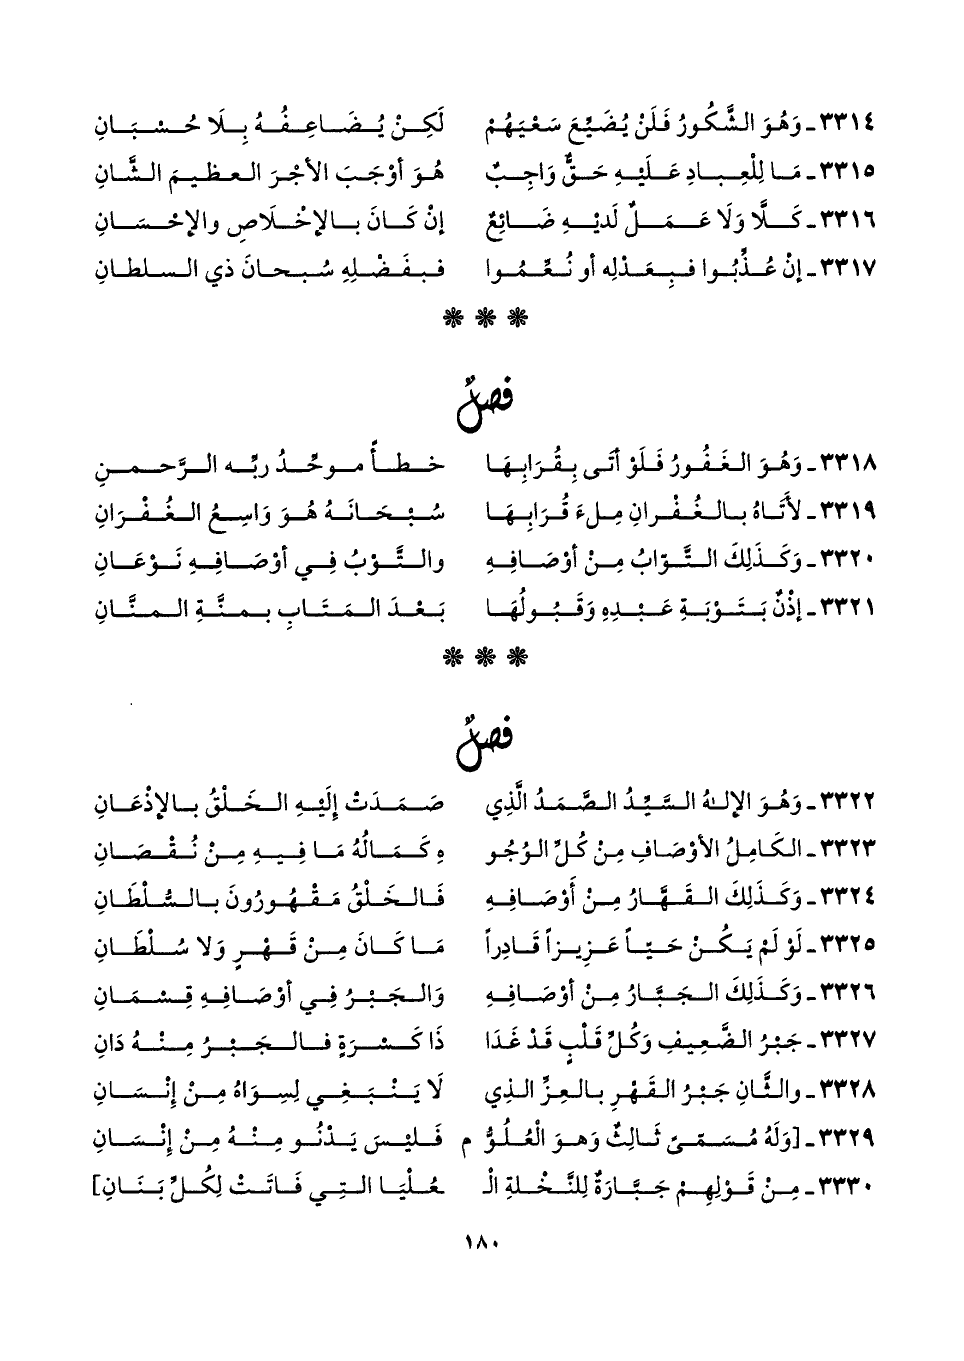 ٣٣١٤ـ وَهُوَ الشَّكُورُ فَلَنْ يُضَيِّعَ سَعْيَهُمْ لَكِنْ يُضَاعِفُهُ بِلَا حُسْبَانِ
٣٣١٥ـ مَا لِلْعِبَادِ عَلَيْهِ حَقٌّ وَاجِبٌ هُوَ أوْجَبَ الأجْرَ العظِيمَ الشَّانِ
٣٣١٦ـ كَلَّا وَلَا عَمَلٌ لَديْهِ ضَائِعٌ إنْ كَانَ بالإخْلَاصِ والإحْسَانِ
٣٣١٧ـ إنْ عُذِّبُوا فبِعَدْلِه أو نُعِّمُوا فبِفَضْلِهِ سُبحانَ ذي السلطانِ
❋ ❋ ❋
فصلٌ
٣٣١٨ـ وَهُوَ الغَفُورُ فَلَوْ أتَى بِقُرَابِهَا خطأً موحِّدُ ربِّه الرَّحمنِ
٣٣١٩ـ لأَتَاهُ بالغُفْرانِ مِلءَ قُرَابِهَا سُبْحَانَهُ هُوَ وَاسِعُ الغُفْرَانِ
٣٣٢٠ـ وَكَذلِكَ التَّوّابُ مِنْ أوْصَافِهِ والتَّوْبُ فِي أوْصَافِهِ نَوْعَانِ
٣٣٢١ـ إذْنٌ بَتَوْبَةِ عَبْدِهِ وَقَبُولُهَا بَعْدَ المَتَابِ بِمنَّةِ المنَّانِ
❋ ❋ ❋
فصلٌ
٣٣٢٢ـ وَهُوَ الإلهُ السَّيِّدُ الصَّمَدُ الَّذِي صَمَدَتْ إلَيْهِ الخَلْقُ بالإذْعَانِ
٣٣٢٣ـ الكَامِلُ الأوْصَافِ مِنْ كُلِّ الوُجُو هِ كَمَالُهُ مَا فِيهِ مِنْ نُقْصَانِ
٣٣٢٤ـ وَكَذَلِكَ القَهَّارُ مِنْ أَوْصَافِهِ فَالخَلْقُ مَقْهُورُونَ بالسُّلْطَانِ
٣٣٢٥ـ لَوْ لَمْ يَكُنْ حَيّاً عَزِيزاً قَادِراً مَا كَانَ مِنْ قَهْرٍ وَلا سُلْطَانِ
٣٣٢٦ـ وَكَذَلِكَ الجَبَّارُ مِنْ أوْصَافِهِ وَالجَبْرُ فِي أوْصَافِهِ قِسْمَانِ
٣٣٢٧ـ جَبْرُ الضَّعِيفِ وَكُلِّ قَلْبٍ قَدْ غَدَا ذَا كَسْرَةٍ فالجَبْرُ مِنْهُ دَانِ
٣٣٢٨ـ والثَّانِ جَبْرُ القَهْرِ بالعِزِّ الذِي لَا يَنْبَغِي لِسِوَاهُ مِنْ إنْسَانِ
٣٣٢٩ـ [وَلَهُ مُسَمّىً ثَالِثٌ وَهوَ الْعُلُوُّ م فَليْسَ يَدْنُو مِنْهُ مِنْ إنْسَانِ
٣٣٣٠ـ مِنْ قَوْلِهِمْ جَبَّارَةٌ لِلنَّخْلَةِ الْـ ـعُلْيَا التِي فَاتَتْ لِكُلِّ بَنَانِ]
١٨٠